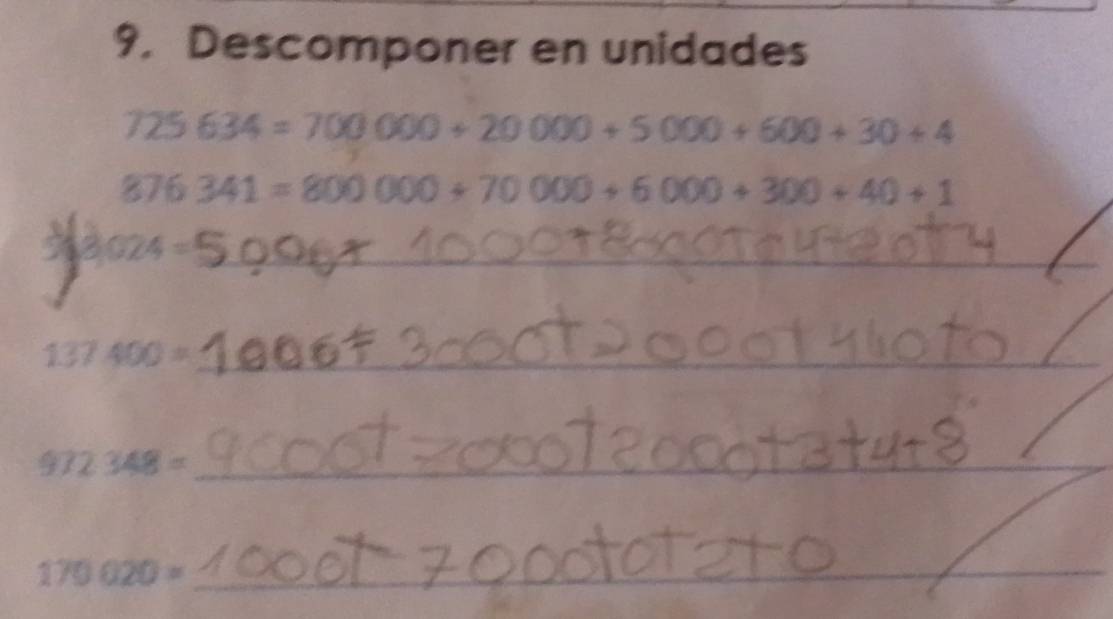 9. Descomponer en unidades
725 634 = 700 000 + 20 000 + 5 000 + 600 + 30 + 4
876 341 = 800 000 + 70 000 + 6 000 + 300 + 40 + 1
024 = 5000+ 1000+8000+ 4+20+4
137 400 = 1000+ 3000+ 2000+ 0+0
972 348 = 9000+ 7000+2000+3+4+8
170 020 = 1000+ 7000+0+2+0